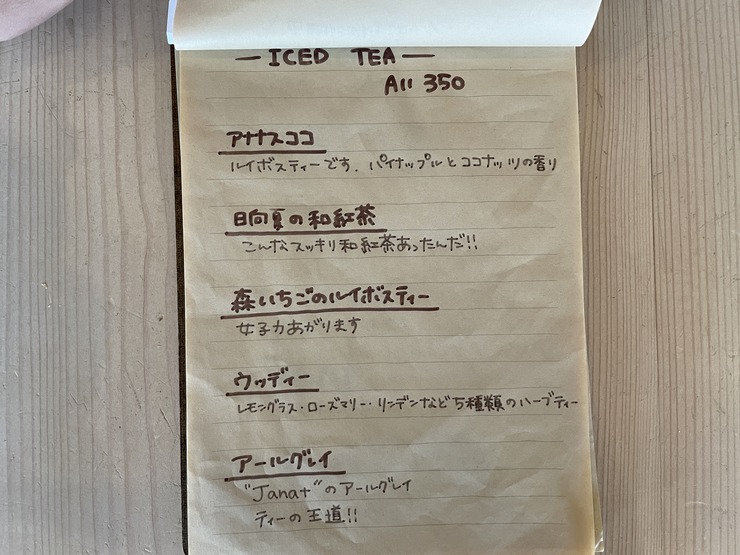 — ICED TEA —
All 350
アナナスココ
ルイボスティーです. パイナップルとココナッツの香り
日向夏の和紅茶
こんなスッキリ和紅茶あったんだ!!
森いちごのルイボスティー
女子力あがります
ウッディー
レモングラス・ローズマリー・リンデンなど5種類のハーブティー
アールグレイ
"Janat"のアールグレイ
ティーの王道!!